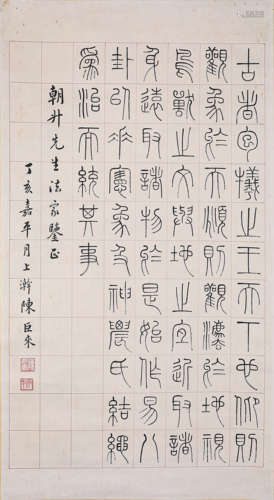 古者庖犧氏之王天下也仰則
觀象於天頫則觀灋於地視
鳥獸之文與地之宜近取諸
身遠取諸物於是始作易八
卦以垂憲象及神農氏結繩
爲治而統其事
朝升先生法家鑒正
丁亥嘉平月上澣陳巨來